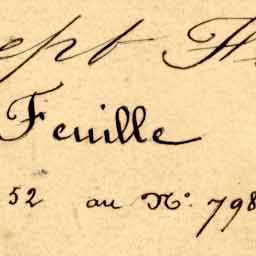 ept H
Feuille
52 au N° 798